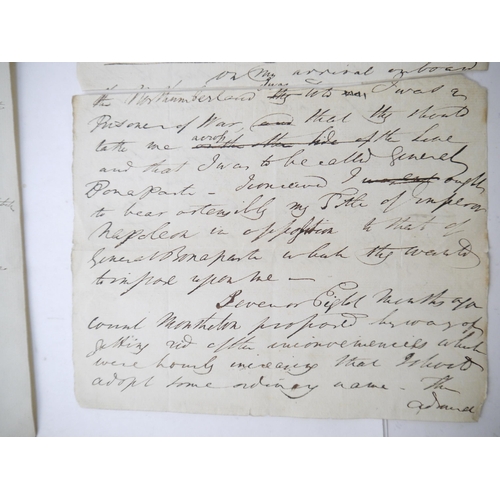 on my arrival on board
the Northumberland I was a
Prisoner of War, and that they should
take me across the side of the Line
and that I was to be called General
Bonaparte - I conceived I ought
to bear ostensibly my Title of Emperor
Napoleon in opposition to that of
General Bonaparte which they wanted
to impose upon me -
Seven or Eight Months ago
count Montholon proposed by way of
getting rid of the inconveniences which
were hourly increasing that I should
adopt some ordinary name - The
admiral